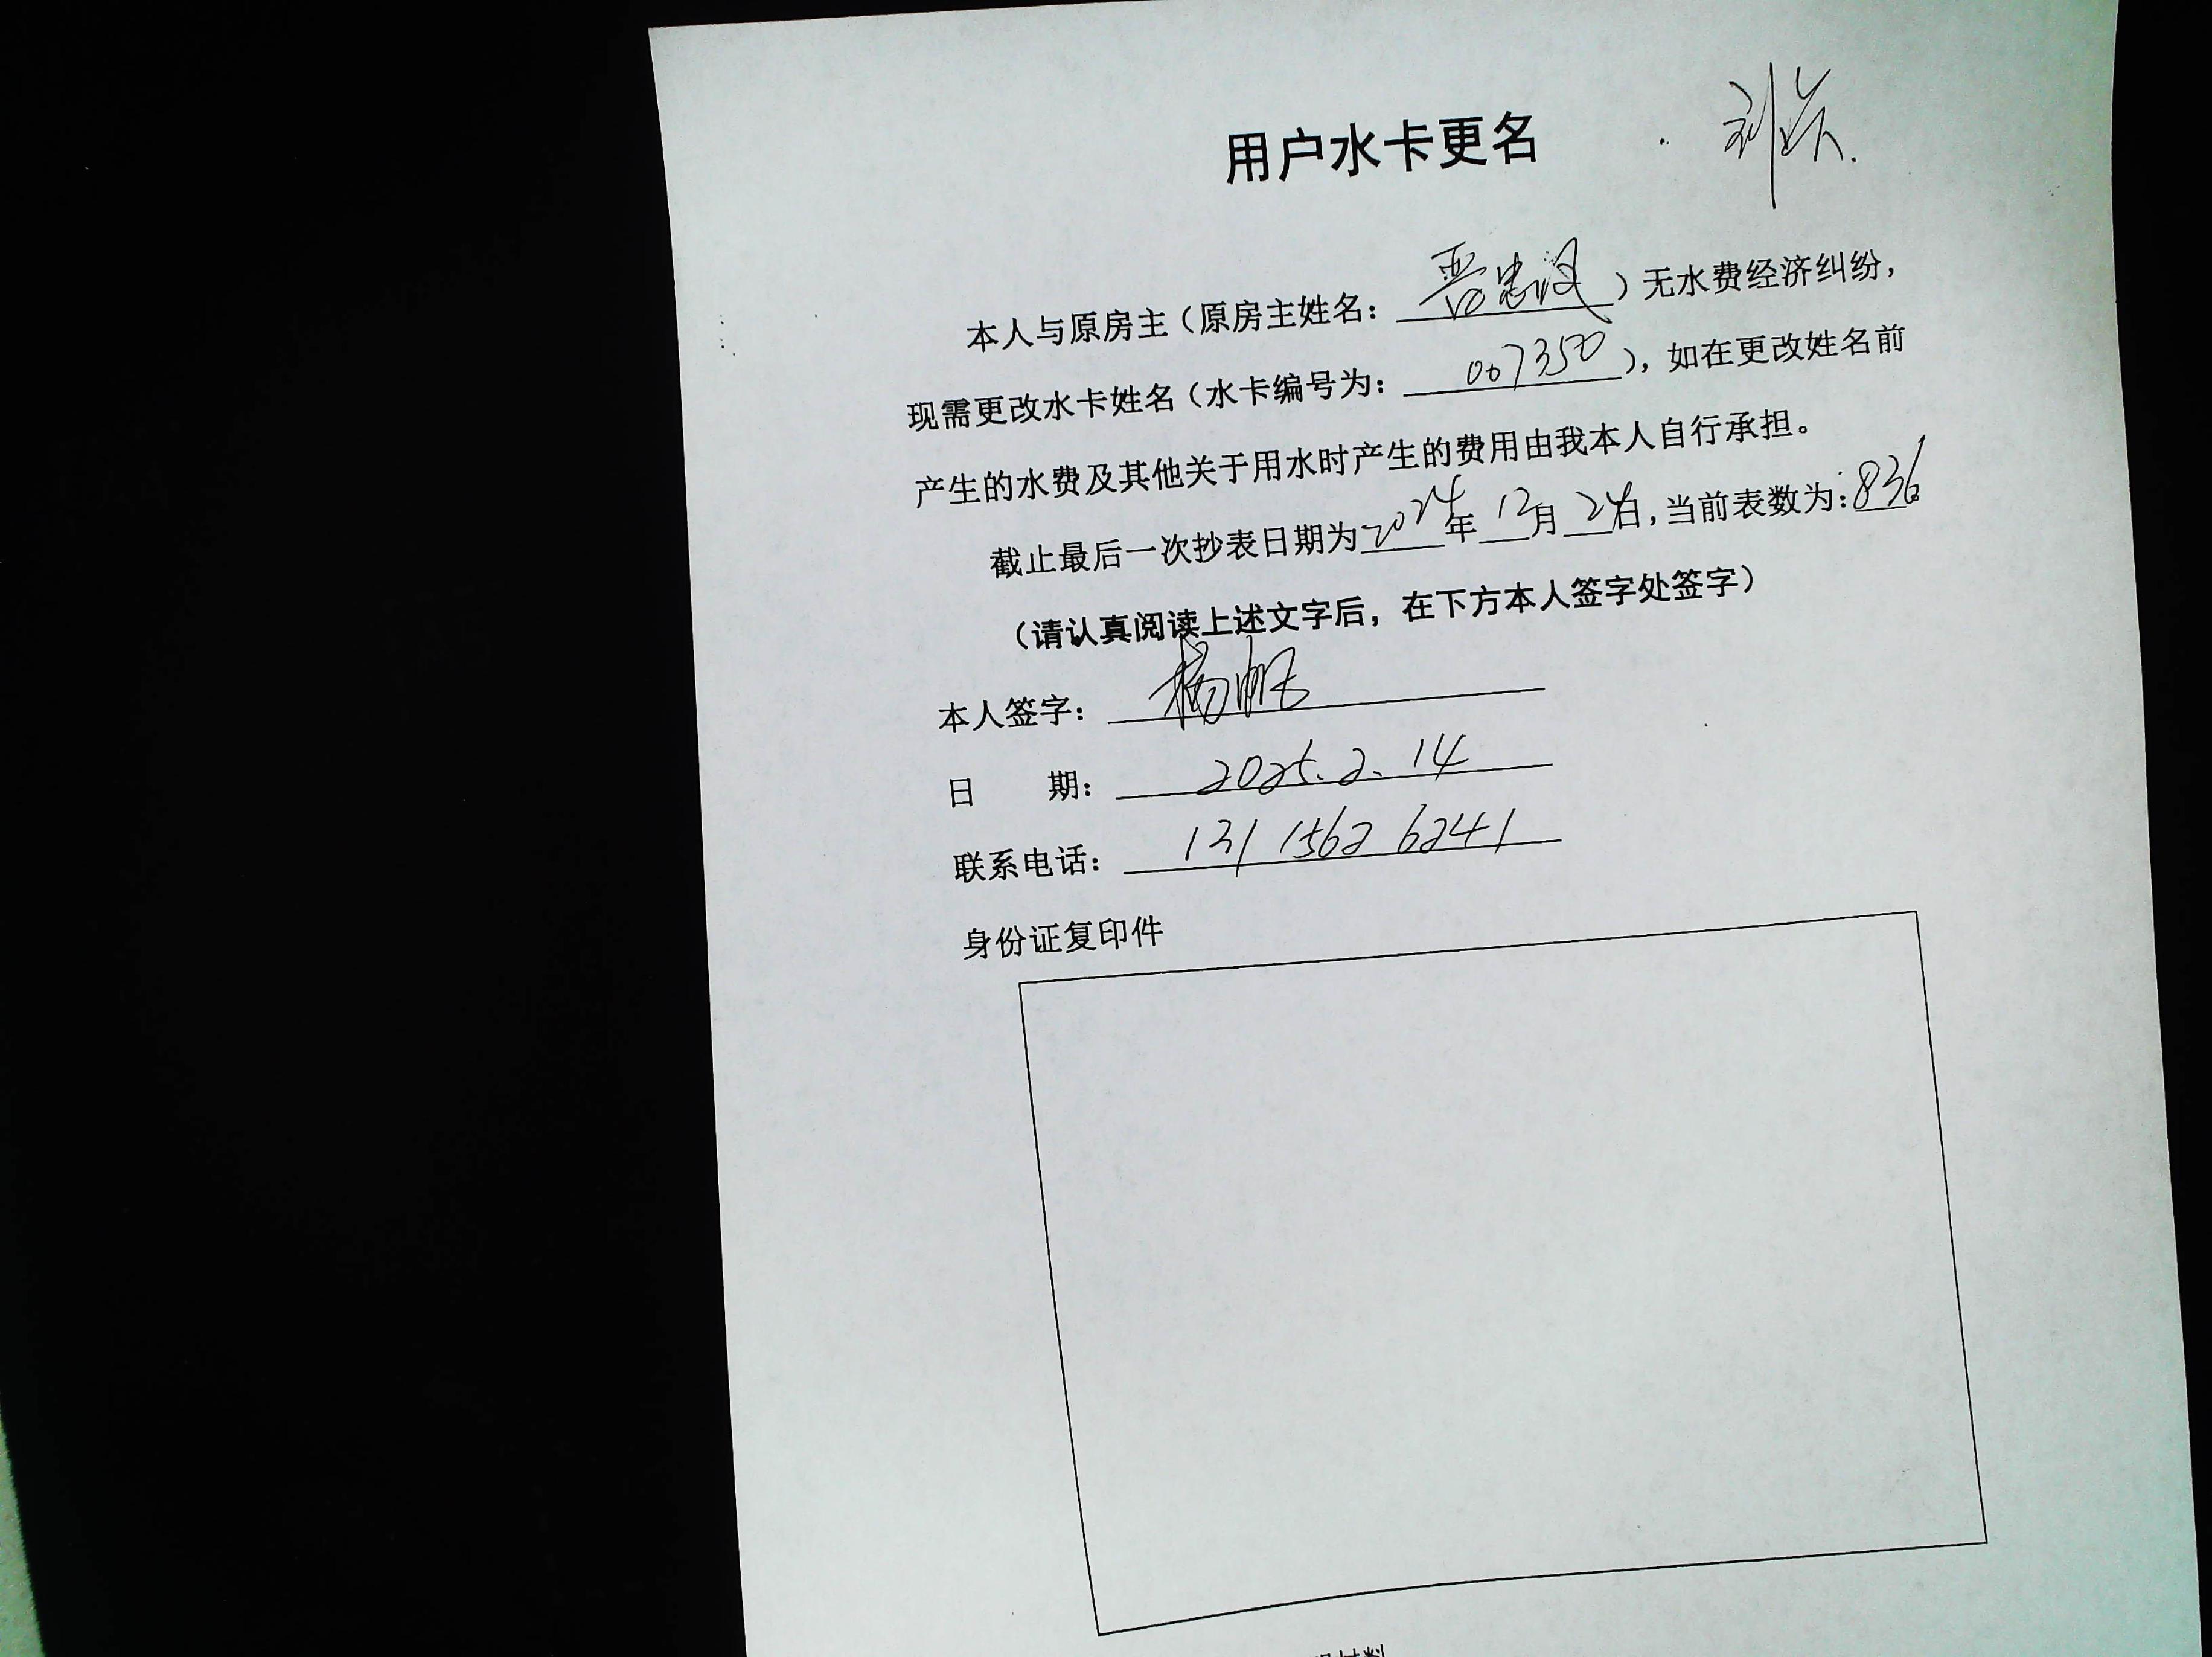 用户水卡更名
本人与原房主（原房主姓名：晋忠汉）无水费经济纠纷，
现需更改水卡姓名（水卡编号为：007350），如在更改姓名前
产生的水费及其他关于用水时产生的费用由我本人自行承担。
截止最后一次抄表日期为2024年12月24日，当前表数为：836
（请认真阅读上述文字后，在下方本人签字处签字）
本人签字：杨帆
日 期：2025.2.14
联系电话：131 1562 6241
身份证复印件
材料